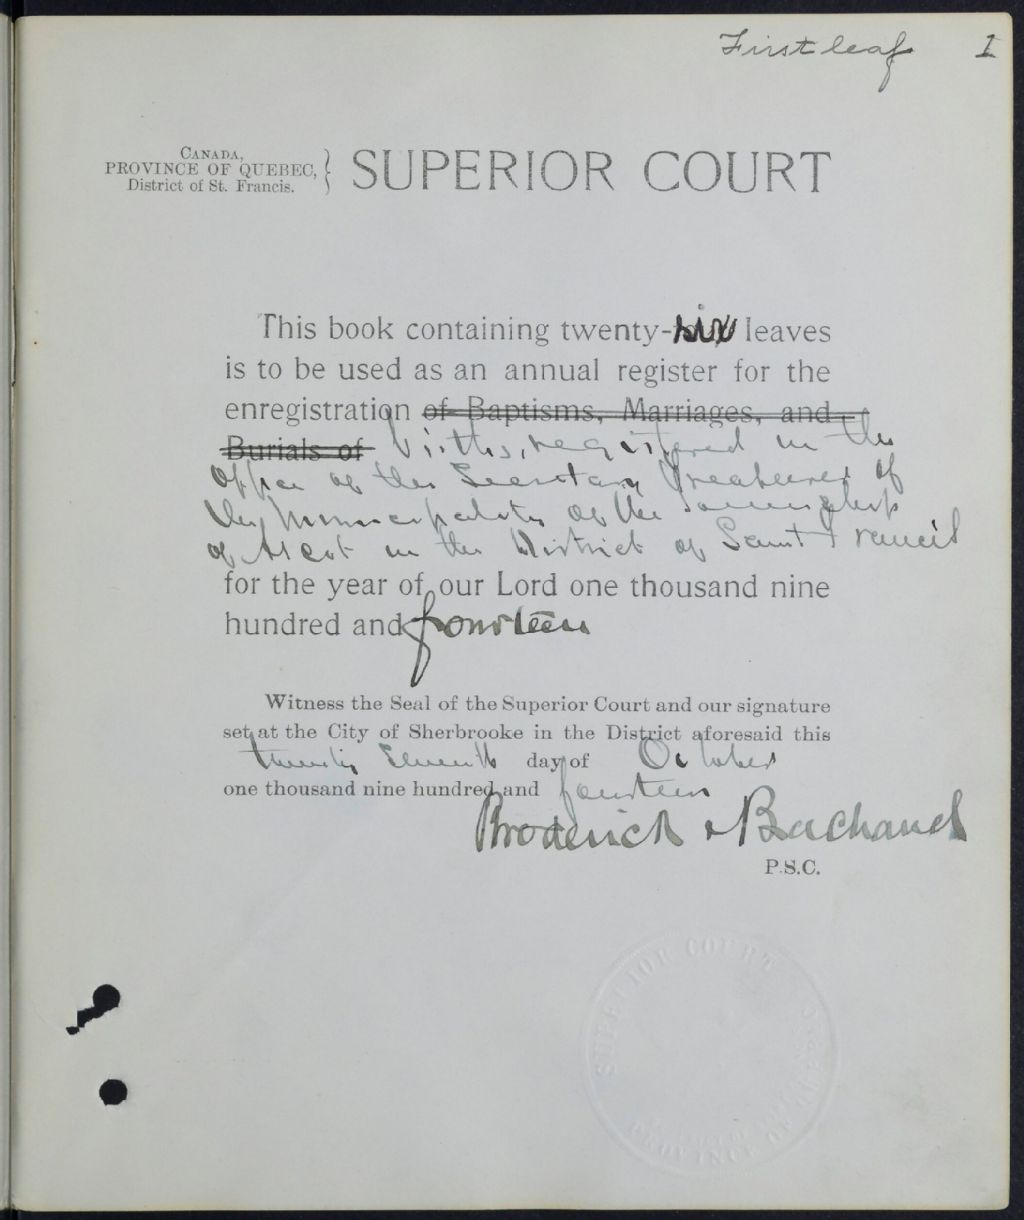 First leaf 1
CANADA,
PROVINCE OF QUEBEC,
District of St. Francis.
SUPERIOR COURT
This book containing twenty-six leaves
is to be used as an annual register for the
enregistration of Baptisms, Marriages, and
Burials of Births, registered in the
Office of the Secretary Treasurer of
the Municipality of the Township
of Ascot in the District of Saint Francis
for the year of our Lord one thousand nine
hundred and fourteen
Witness the Seal of the Superior Court and our signature
set at the City of Sherbrooke in the District aforesaid this
twenty seventh day of October
one thousand nine hundred and fourteen
Broderick & Bachand
P.S.C.
SUPERIOR COURT
PROVINCE OF